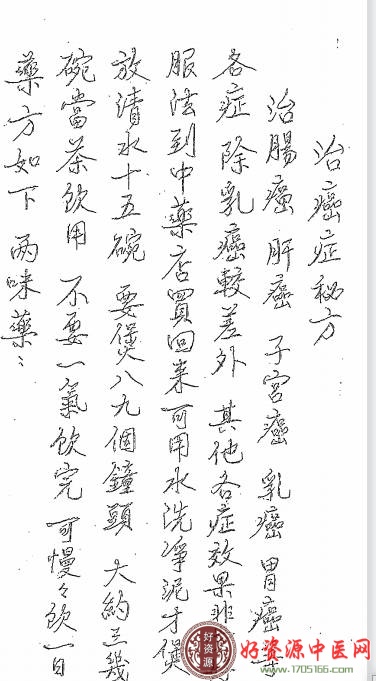 治癌症秘方
治腸癌 肝癌 子宮癌 乳癌 胃癌
各症 除乳癌較差外 其他各症效果非
服法到中藥店買回来可用水洗净泥才煲
放清水十五碗 要煲八九個鐘頭 大約三幾
碗當茶飲用 不要一氣飲完 可慢々飲一日
藥方如下 兩味藥:
好资源
好资源中医网
www.1705166.com